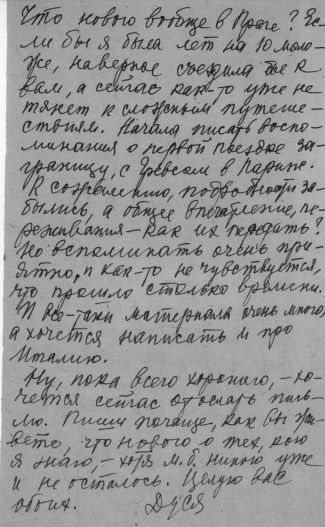 Что нового вообще в Праге? Ес-
ли бы я была лет на 10 моло-
же, наверное съездила бы к
вам, а сейчас как-то уже не
тянет к сложным путеше-
ствиям. Начала писать воспо-
минания о первой поездке за-
границу, с Гревсом в Париж.
К сожалению, подробности за-
былись, а общее впечатление, пе-
реживания – как их передать?
Но вспоминать очень при-
ятно, и как-то не чувствуется,
что прошло столько времени.
И все-таки материала очень много,
а хочется написать и про
Италию.
Ну, пока всего хорошего, – хо-
чется сейчас отослать пись-
мо. Пиши почаще, как вы жи-
вете, что нового о тех, кого
я знаю, – хотя м.б. никого уже
и не осталось. Целую вас
обоих. Дуся